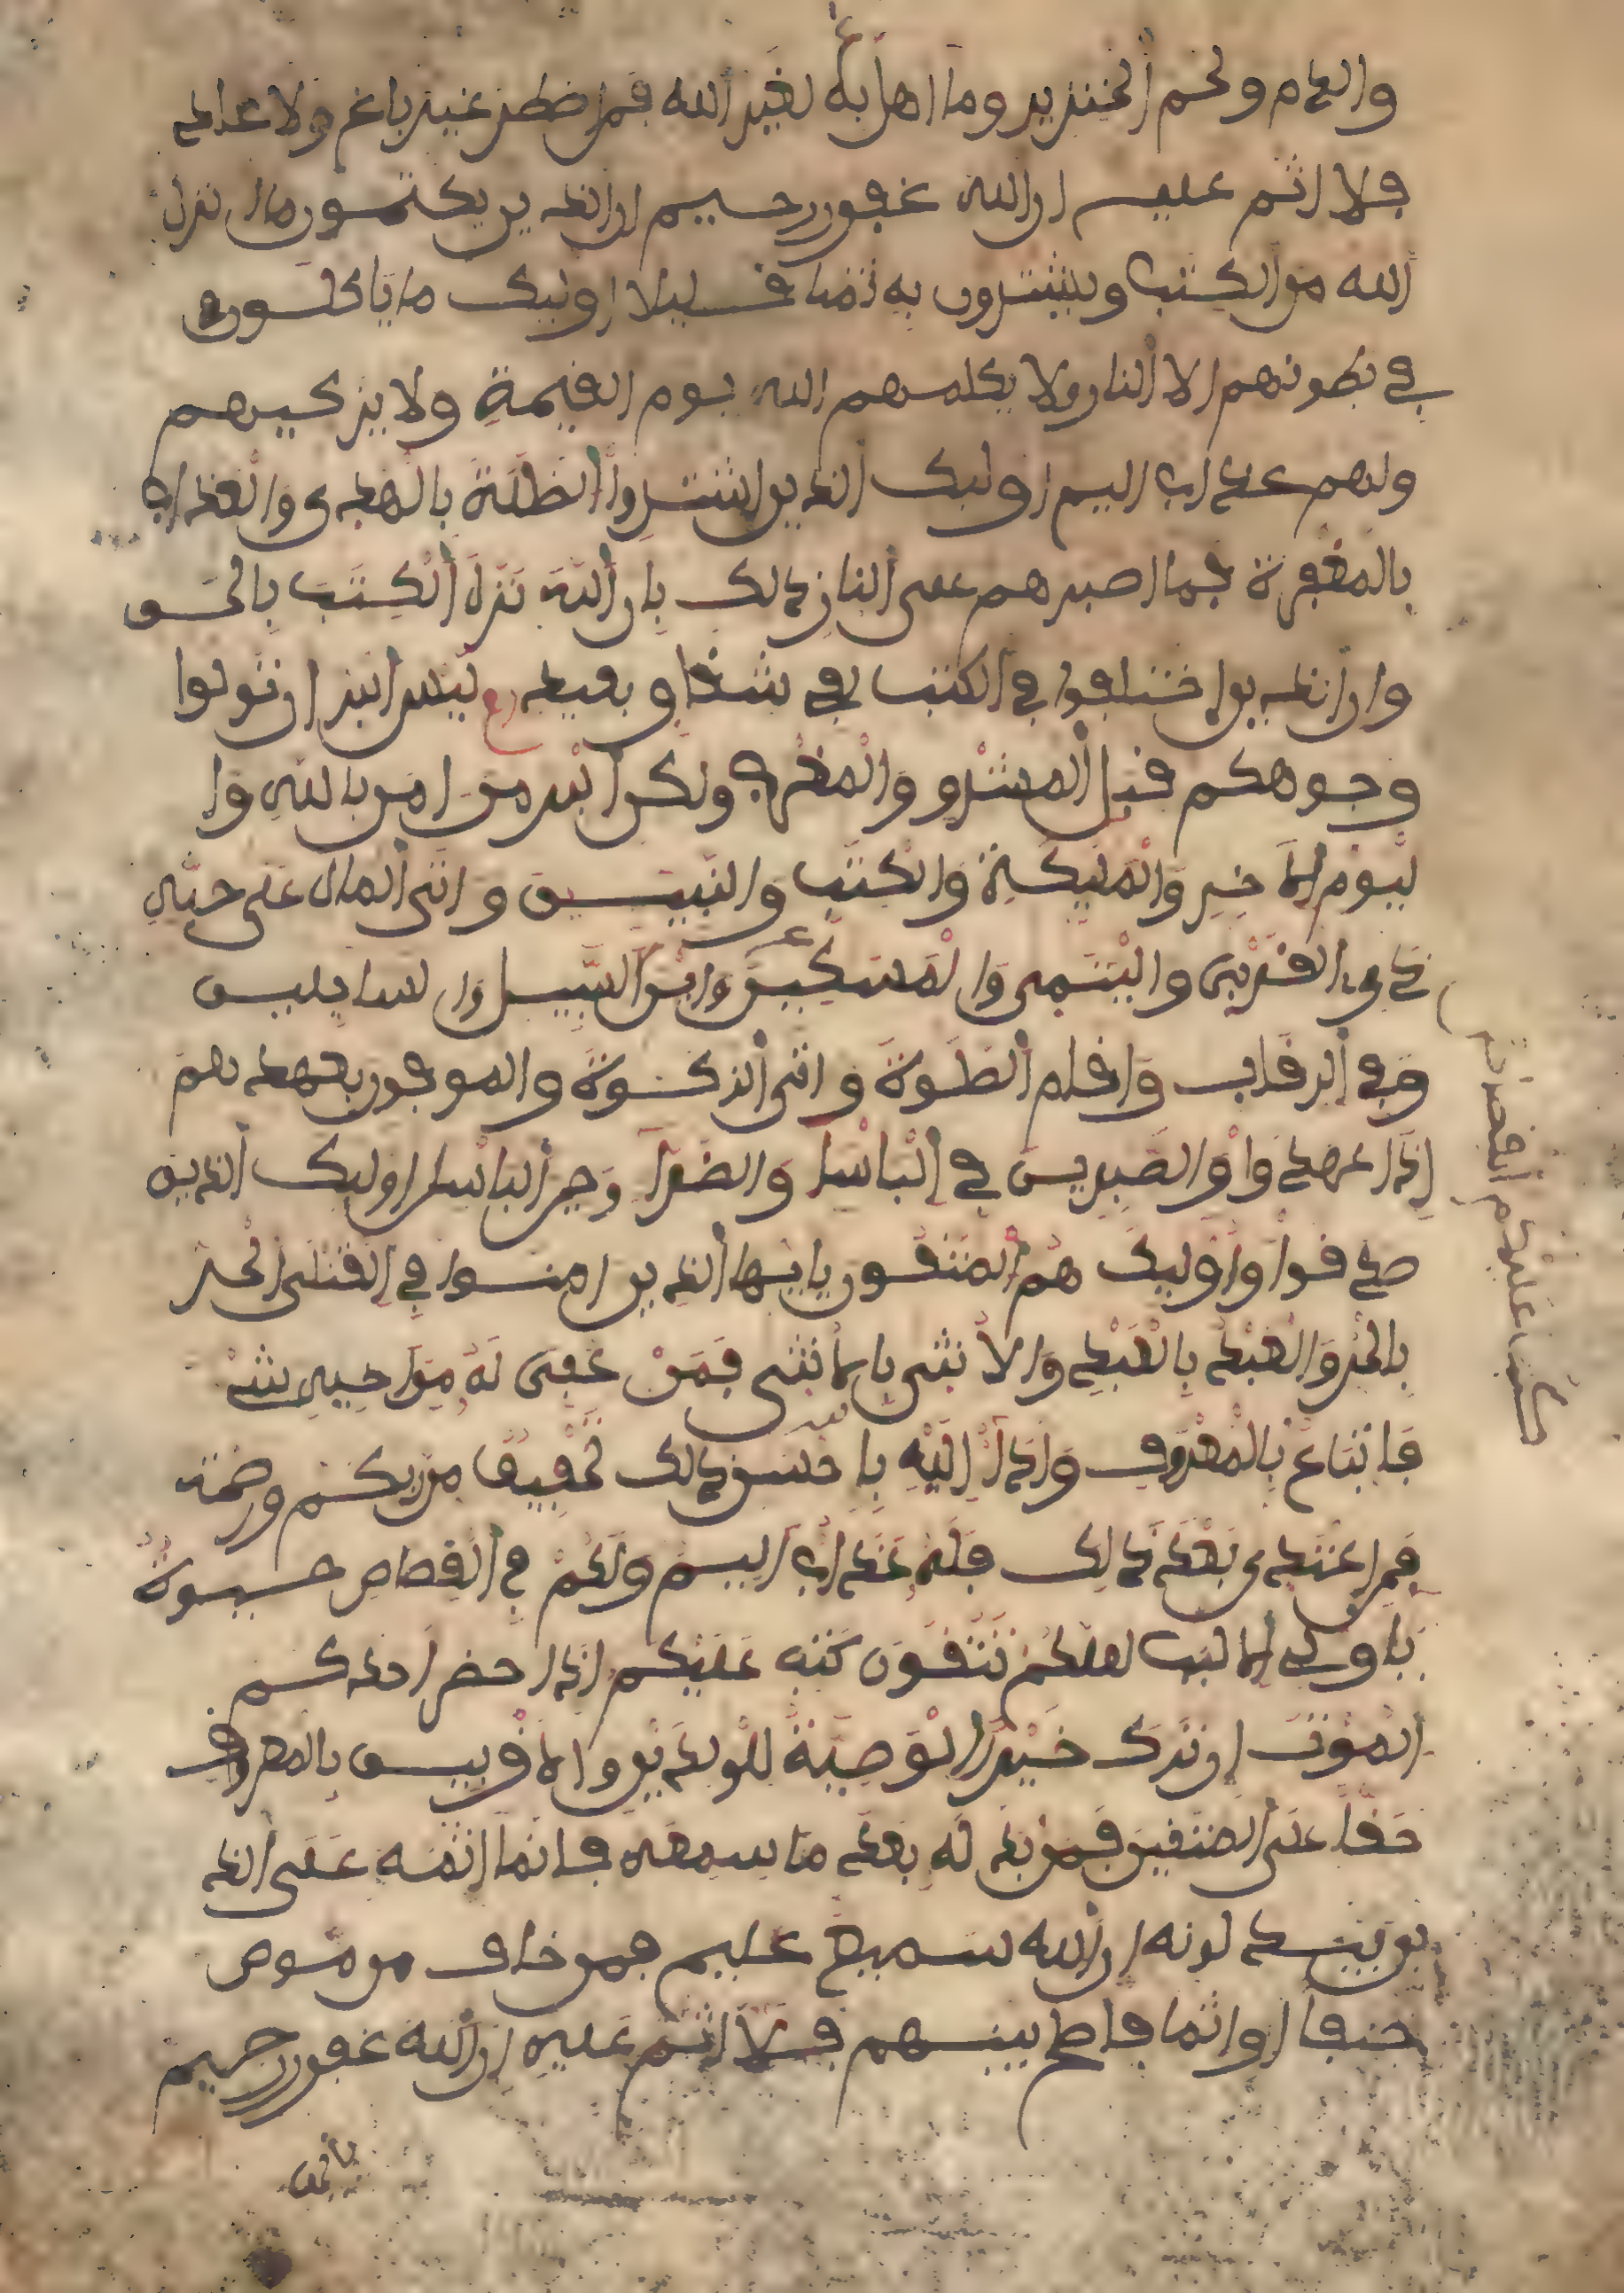 والدم ولحم الخنزير وما اهل به لغير الله فمن اضطر غير باغ ولا عاد
فلا اثم عليه ان الله غفور رحيم ان الذين يكتمون ما انزل
الله من الكتب ويشترون به ثمنا قليلا اوليك ما ياكلون
في بطونهم الا النار ولا يكلمهم الله يوم القيمة ولا يزكيهم
ولهم عذاب اليم اوليك الذين اشتروا الضللة بالهدى والعذاب
بالمغفرة فما اصبرهم على النار ذلك بان الله نزل الكتب بالحق
وان الذين اختلفوا في الكتب لفي شقاق بعيد ليس البر ان تولوا
وجوهكم قبل المشرق والمغرب ولكن البر من امن بالله وا
ليوم الاخر والمليكة والكتب والنبيين واتى المال على حبه
ذوى القربى واليتمى والمسكين وابن السبيل والسايلين
وفي الرقاب واقام الصلوة واتى الزكوة والموفون بعهدهم
اذا عهدوا والصبرين في الباسا والضرا وحين الباس اوليك الذين
صدقوا واوليك هم المتقون يايها الذين امنوا
كتب عليكم القصاص
في القتلى الحر
بالحر والعبد بالعبد والانثى بالانثى فمن عفى له من اخيه شىء
فاتباع بالمعروف واداء اليه باحسن ذلك تخفيف من ربكم ورحمة
فمن اعتدى بعد ذلك فله عذاب اليم ولكم في القصاص حيوة
ياولى الالبب لعلكم تتقون كتب عليكم اذا حضر احدكم
الموت ان ترك خيرا الوصية للولدين والاقربين بالمعروف
حقا على المتقين فمن بدله بعد ما سمعه فانما اثمه على الذ
ين يبدلونه ان الله سميع عليم فمن خاف من موص
جنفا او اثما فاصلح بينهم فلا اثم عليه ان الله غفور رحيم